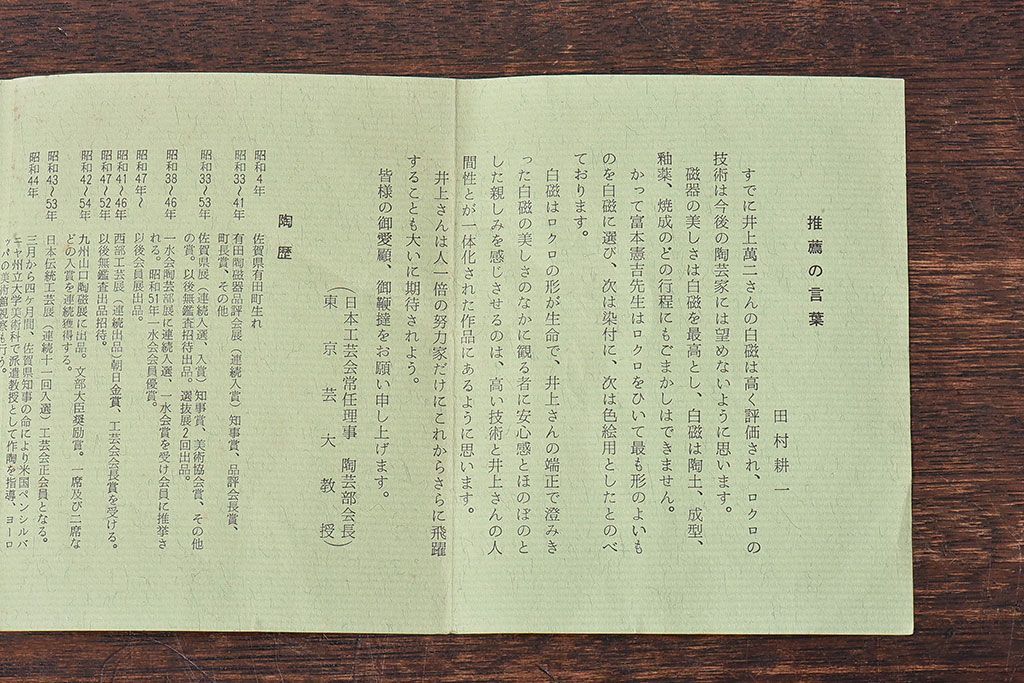 推薦の言葉
田村耕一
すでに井上萬二さんの白磁は高く評価され、ロクロの
技術は今後の陶芸家には望めないように思います。
磁器の美しさは白磁を最高とし、白磁は陶土、成型、
釉薬、焼成のどの行程にもごまかしはできません。
かって富本憲吉先生はロクロをひいて最も形のよいも
のを白磁に選び、次は染付に、次は色絵用としたとのべ
ております。
白磁はロクロの形が生命で、井上さんの端正で澄みき
った白磁の美しさのなかに観る者に安心感とほのぼのと
した親しみを感じさせるのは、高い技術と井上さんの人
間性とが一体化された作品にあるように思います。
井上さんは人一倍の努力家だけにこれからさらに飛躍
することも大いに期待されよう。
皆様の御愛顧、御鞭撻をお願い申し上げます。
(日本工芸会常任理事 陶芸部会長)
(東京芸大教授)
陶歴
昭和4年 佐賀県有田町生れ
昭和33〜41年 有田陶磁器品評会展(連続入賞)知事賞、品評会長賞、
町長賞、その他
昭和33〜53年 佐賀県展(連続入選、入賞)知事賞、美術協会賞、その他
の賞。以後無鑑査招待出品。選抜展2回出品。
昭和38〜46年 一水会陶芸部展に連続入選、一水会賞を受け会員に推挙さ
れる。昭和51年一水会会員優賞。
昭和47年〜 以後会員展出品。
昭和41〜46年 西部工芸展(連続出品)朝日金賞、工芸会会長賞を受ける。
昭和47〜52年 以後無鑑査出品招待。
昭和42〜54年 九州山口陶磁展に出品。文部大臣奨励賞。一席及び二席な
どの入賞を連続獲得する。
昭和43〜53年 日本伝統工芸展(連続十一回入選)工芸会正会員となる。
昭和44年 三月から四ヶ月間、佐賀県知事の命により米国ペンシルバ
ニャ州立大学美術科で派遣教授として作陶を指導、ヨーロ
ッパの美術館視察も行う。